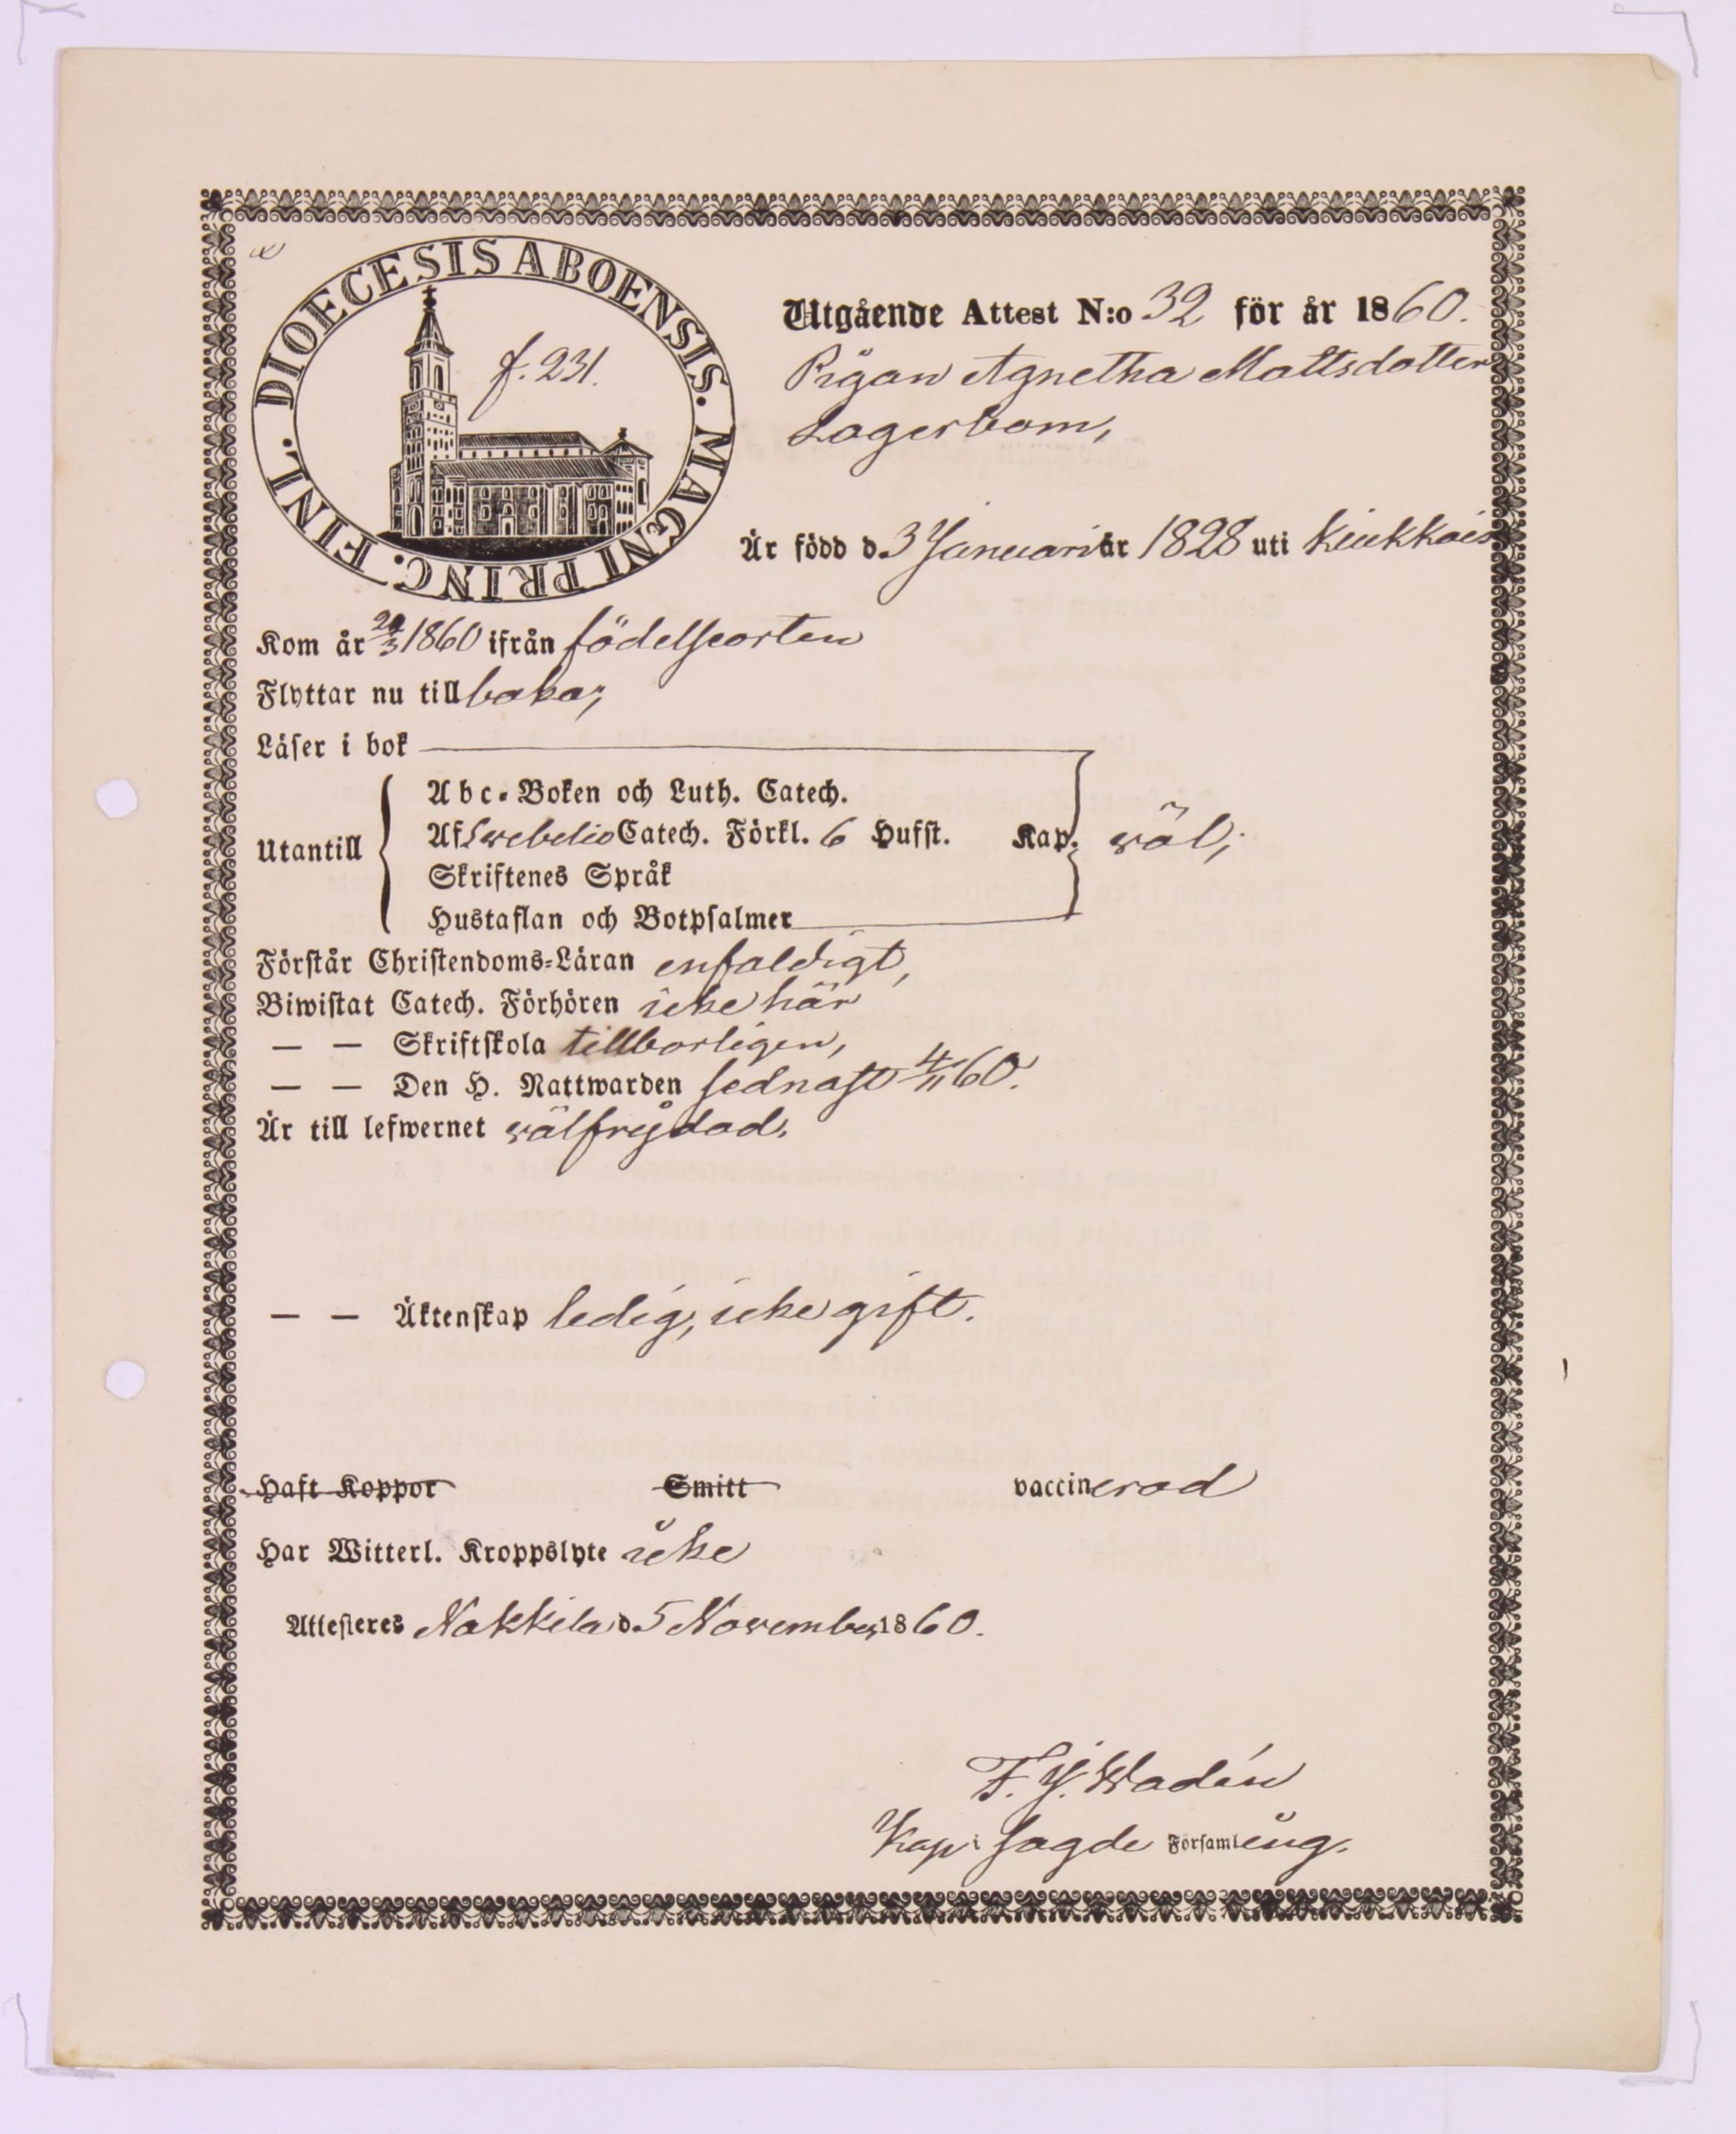 DIOECESIS ABOENSIS. MAGNI PRINC. FINL.
f. 231.
Utgående Attest N:o 32 för år 1860.
Pigan Agnetha Mattsdotter
Lagerbom,
Är född d. 3 Januari år 1828 uti Kiukkais
Kom år 29/3 1860 ifrån födelseorten
Flyttar nu tillbaka;
Läser i bok
Utantill
Abc-Boken och Luth. Catech.
Af Swebelio Catech. Förkl. 6 Hufst. Kap. wäl;
Skriftenes Språk
Hustaflan och Botpsalmer
Förstår Christendoms-Läran enfaldigt,
Biwistat Catech. Förhören icke här
— — Skriftskola tillborligen,
— — Den H. Nattwarden sednast 4/11 60.
Är till lefwernet wälfrejdad.
— — Äktenskap ledig, icke gift.
Haft Koppor Smitt vaccinerad
Har Witterl. Kroppslyte icke
Attesteres Nakkila d. 5 November 1860.
F. J. Wadén
Kap. i sagde Församling.